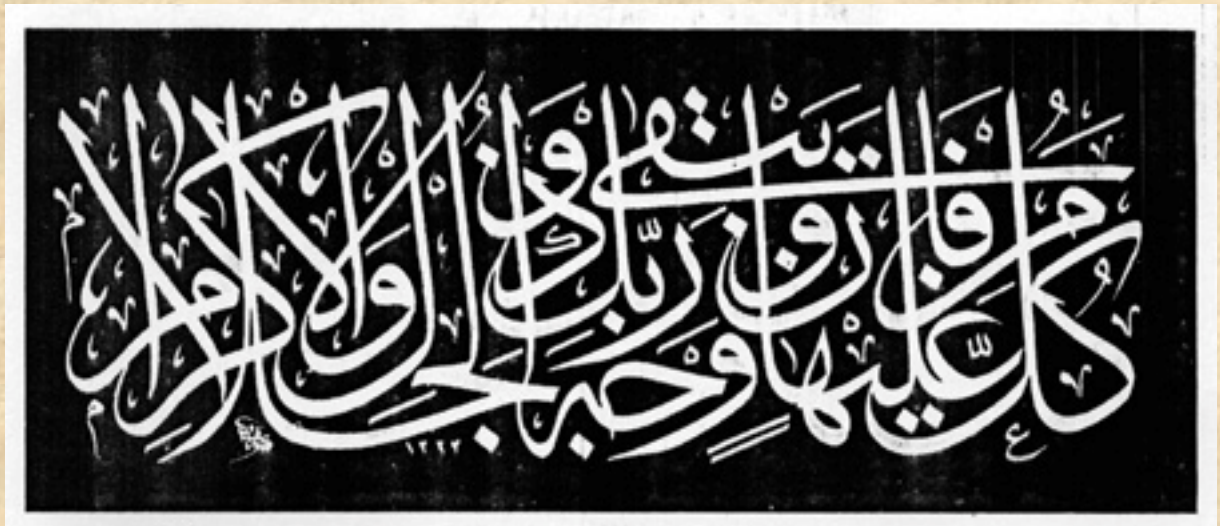 كُلُّ مَنْ عَلَيْهَا فَانٍ وَيَبْقٰى وَجْهُ رَبِّكَ ذُو الْجَلَالِ وَالْاِكْرَامِ